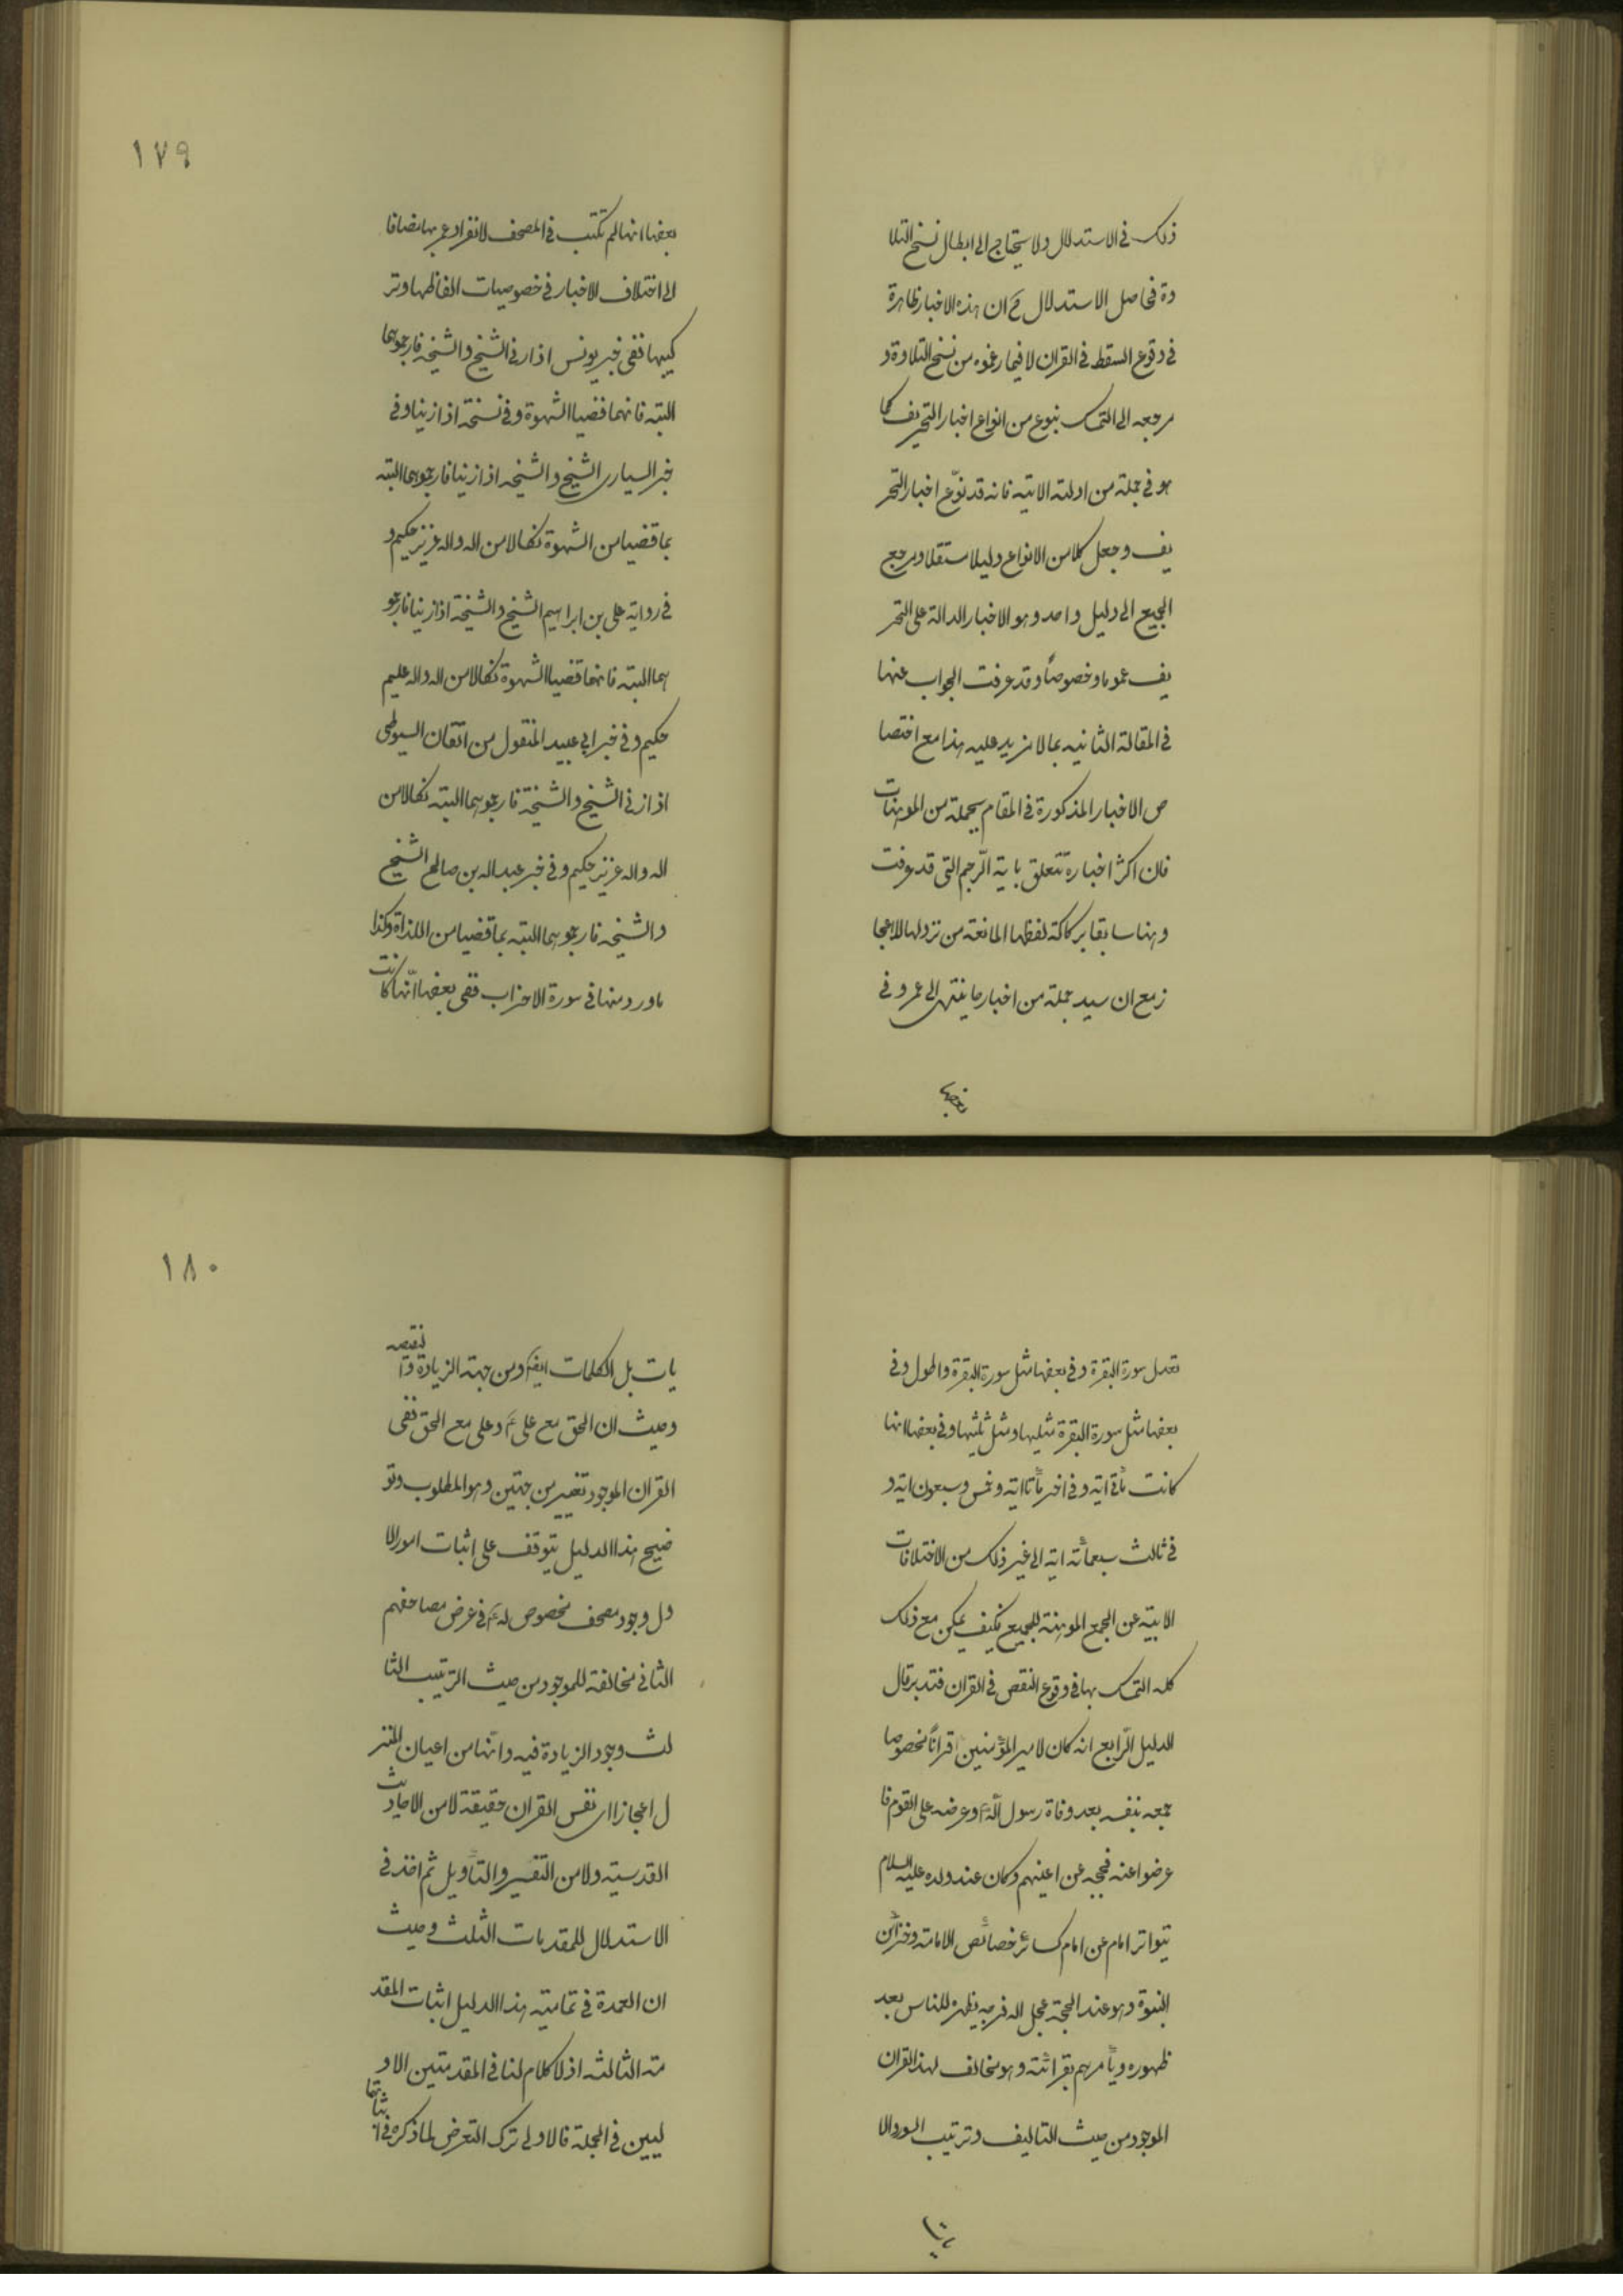 ذلك في الاستدلال ولا يحتاج الى ابطال نسخ التلا
وة في اصل الاستدلال مع ان هذه الاخبار ظاهرة
في وقوع السقط في القران لا فيما زعموه من نسخ التلاوة و
مرجعه الى التمسك بنوع من انواع اخبار التحريف كما
هو في جملة من ادلته الاتيه فانه قد نوّع اخبار التحر
يف وجعل كلا من الانواع دليلا مستقلا ومرجع
الجميع الى دليل واحد وهو الاخبار الدالة على التحر
يف عموما وخصوصاً وقد عرفت الجواب عنها
في المقالة الثانيه بما لا مزيد عليه هذا مع اختصا
ص الاخبار المذكورة في المقام بجملة من الموهنات
فان اكثر اخباره تتعلق باية الرّجم التي قد عرفت
وهنا سابقا بركاكة لفظها المانعة من نزولها للاعجا
ز مع ان سيد جملة من اخبارها ينتهى الى عمر وفي
بعضها
١٧٩
بعضها انها لم تكتب في المصحف لانفراد عمر بها مضافا
الى اختلاف الاخبار في خصوصيات الفاظها وتر
كيبها ففى خبر يونس اذا زنى الشيخ والشيخه فارجموهما
البته فانهما قضيا الشهوة وفي نسخة اذا زنيا وفي
خبر السيارى الشيخ والشيخه اذا زنيا فارجموهما البته
بما قضيا من الشهوة نكالا من الله والله عزيز حكيم و
في رواية على بن ابراهيم الشيخ والشيخة اذا زنيا فارجمو
هما البته فانهما قضيا الشهوة نكالا من الله والله عليم
حكيم وفي خبر ابي عبيد المنقول من اتقان السيوطى
اذا زنى الشيخ والشيخة فارجموهما البته نكالا من
الله والله عزيز حكيم وفي خبر عبد الله بن صالح الشيخ
والشيخه فارجموهما البته بما قضيا من اللذاة وكذا
ما ورد منها في سورة الاحزاب ففى بعضها انّها كانت
تعدل سورة البقرة وفي بعضها مثل سورة البقرة واطول وفي
بعضها مثل سورة البقرة مثليها ومثل ثلثيها وفي بعضها انها
كانت مأتى اية وفي اخر مأتا اية وخمس وسبعون اية و
في ثالث سبعمأئة اية الى غير ذلك من الاختلافات
الابية عن الجمع الموهنة للجميع فكيف يمكن مع ذلك
كله التمسك بها في وقوع النقص في القران فتدبر قال
الدليل الرّابع انه كان لامير المؤمنين قرانًا مخصوصا
جمعه بنفسه بعد وفاة رسول اللّه وعرضه على القوم فا
عرضوا عنه فحجبه عن اعينهم وكان عند ولده عليه السلام
يتواتر امام عن امام كسائر خصائص الامامة وخزائن
النبوّة وهو عند الحجة عجل الله فرجه يظهره للناس بعد
ظهوره ويأمرهم بقرائته وهو مخالف لهذا القران
الموجود من حيث التاليف وترتيب السور والا
يات
١٨٠
يات بل الكلمات ايضا ومن جهة الزيادة والنقصه
وحيث ان الحق مع على ع وعلى مع الحق ففى
القران الموجود تغيير من جهتين وهو المطلوب وتو
ضيح هذا الدليل يتوقف على اثبات امور الا
ول وجود مصحف مخصوص له ع في عرض مصاحفهم
الثانى مخالفته للموجود من حيث الترتيب الثا
لث وجود الزيادة فيه وانّها من اعيان المنز
ل اعجازا اى نفس القران حقيقة لا من الاحاديث
القدسيّه ولا من التفسير والتأويل ثم اخذ في
الاستدلال للمقدمات الثلث وحيث
ان العمدة في تمامية هذا الدليل اثبات المقد
مة الثالثه اذ لا كلام لنا في المقدمتين الاو
ليين في الجملة فالاولى ترك التعرض لما ذكره في اثباتها